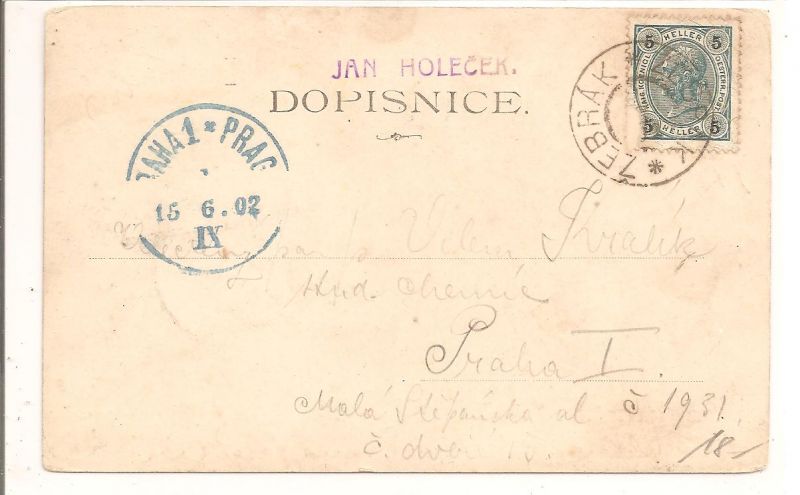 JAN HOLEČEK.
DOPISNICE.
5 HELLER 5
5 HELLER 5
ŽEBRÁK
PRAHA 1 * PRAG
15 6.02
IX
Vilém Kralík
stud. chemie
Praha I.
Malá Štěpánská ul č 1931
č. dveří 15.
18-